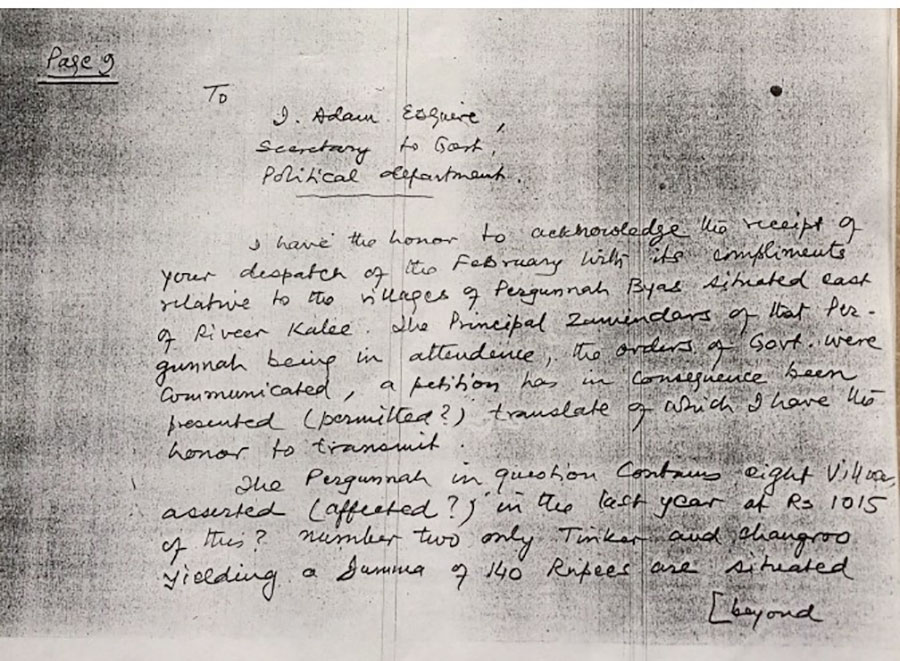 Page 9
To
J. Adam Esquire,
Secretary to Govt,
Political department.
I have the honor to acknowledge the receipt of
your despatch of the February with its compliments
relative to the villages of Pergunnah Byas situated east
of River Kalee. The Principal Zamindars of that Per-
gunnah being in attendence, the orders of Govt. were
Communicated, a petition has in consequence been
presented (permitted?) translate of which I have the
honor to transmit.
The Pergunnah in question Contains eight
asserted (affected?) in the last year at Rs 1015
of this? number two only Tinker and changroo
yielding a Jumma of 140 Rupees are situated
[beyond